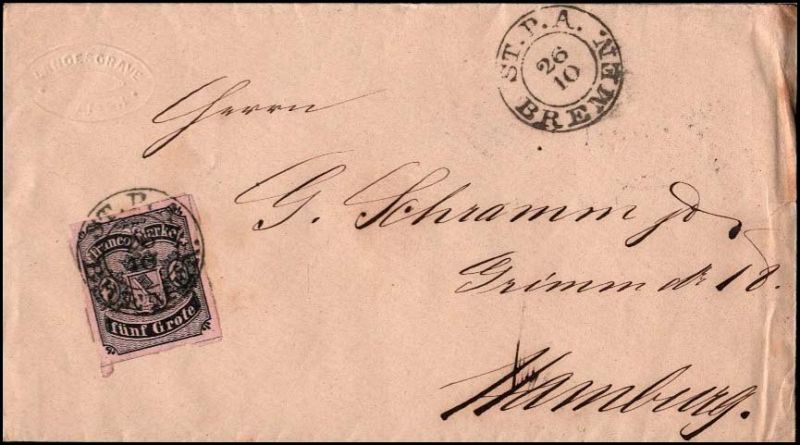 LANGESGRAVE
ST. P. A.
26
10
BREMEN
Herrn
G. Schramm
Grimm 18.
Hamburg.
ST. P.
Franco Marke
fünf Grote